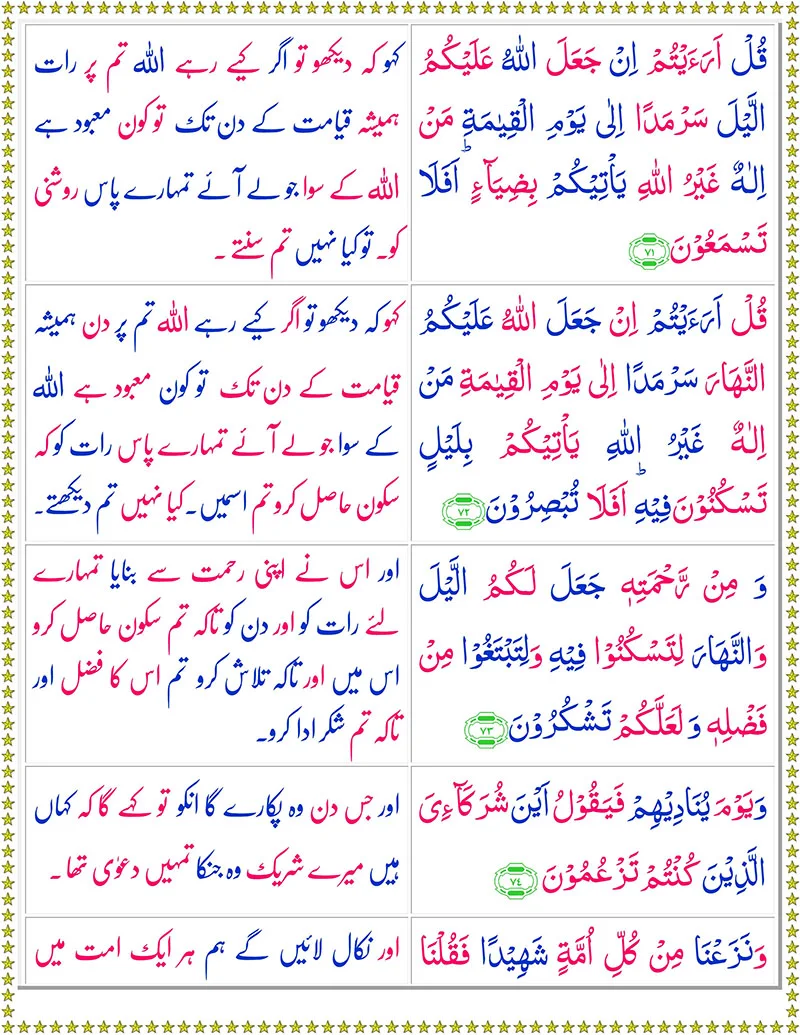 قُلْ اَرَءَيْتُمْ اِنْ جَعَلَ اللّٰهُ عَلَيْكُمُ
الَّيْلَ سَرْمَدًا اِلٰى يَوْمِ الْقِيٰمَةِ مَنْ
اِلٰهٌ غَيْرُ اللّٰهِ يَاْتِيْكُمْ بِضِيَآءٍؕ اَفَلَا
تَسْمَعُوْنَ ﴿۷۱﴾
کہو کہ دیکھو تو اگر کیے رہے اللہ تم پر رات
ہمیشہ قیامت کے دن تک تو کون معبود ہے
اللہ کے سوا جو لے آئے تمہارے پاس روشنی
کو۔ تو کیا نہیں تم سنتے ۔
قُلْ اَرَءَيْتُمْ اِنْ جَعَلَ اللّٰهُ عَلَيْكُمُ
النَّهَارَ سَرْمَدًا اِلٰى يَوْمِ الْقِيٰمَةِ مَنْ
اِلٰهٌ غَيْرُ اللّٰهِ يَاْتِيْكُمْ بِلَيْلٍ
تَسْكُنُوْنَ فِيْهِؕ اَفَلَا تُبْصِرُوْنَ ﴿۷۲﴾
کہو کہ دیکھو تو اگر کیے رہے اللہ تم پر دن ہمیشہ
قیامت کے دن تک تو کون معبود ہے اللہ
کے سوا جو لے آئے تمہارے پاس رات کو کہ
سکون حاصل کرو تم اسمیں۔ کیا نہیں تم دیکھتے۔
وَ مِنْ رَّحْمَتِهٖ جَعَلَ لَكُمُ الَّيْلَ
وَالنَّهَارَ لِتَسْكُنُوْا فِيْهِ وَلِتَبْتَغُوْا مِنْ
فَضْلِهٖ وَ لَعَلَّكُمْ تَشْكُرُوْنَ ﴿۷۳﴾
اور اس نے اپنی رحمت سے بنایا تمہارے
لئے رات کو اور دن کو تاکہ تم سکون حاصل کرو
اس میں اور تاکہ تلاش کرو تم اس کا فضل اور
تاکہ تم شکر ادا کرو۔
وَيَوْمَ يُنَادِيْهِمْ فَيَقُوْلُ اَيْنَ شُرَكَآءِيَ
الَّذِيْنَ كُنْتُمْ تَزْعُمُوْنَ ﴿۷۴﴾
اور جس دن وہ پکارے گا انکو تو کہے گا کہ کہاں
ہیں میرے شریک وہ جنکا تمہیں دعوٰی تھا ۔
وَنَزَعْنَا مِنْ كُلِّ اُمَّةٍ شَهِيْدًا فَقُلْنَا
اور نکال لائیں گے ہم ہر ایک امت میں